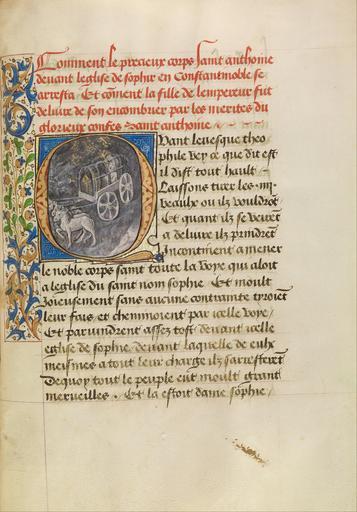 Comment le precieux corps saint anthoine
deuant leglise de sophie en Constantinoble se
arresta Et cōment la fille de lempereur fut
deliure de son encombrier par les merites du
glorieux confes saint anthoine
Quant leuesque theo
phile vey ce que dit est
il dist tout hault
Laissons tirer les .iiii.
beaulx ou ilz vouldrōt
Et quant ilz se veirēt
a deliure ilz prindrēt
Incontinent a mener
le noble corps saint toute la voye qui aloit
a leglise du saint nom sophie Et moult
Joieusement sans aucune contrainte tyroiēt
leur fais et cheminoient par icelle voye
Et paruindrent assez tost deuant icelle
eglise de sophie deuant laquelle de eulx
meismes a tout leur charge ilz sarresterēt
Dequoy tout le peuple eut moult grant
merueilles . Et la estoit dame sophie